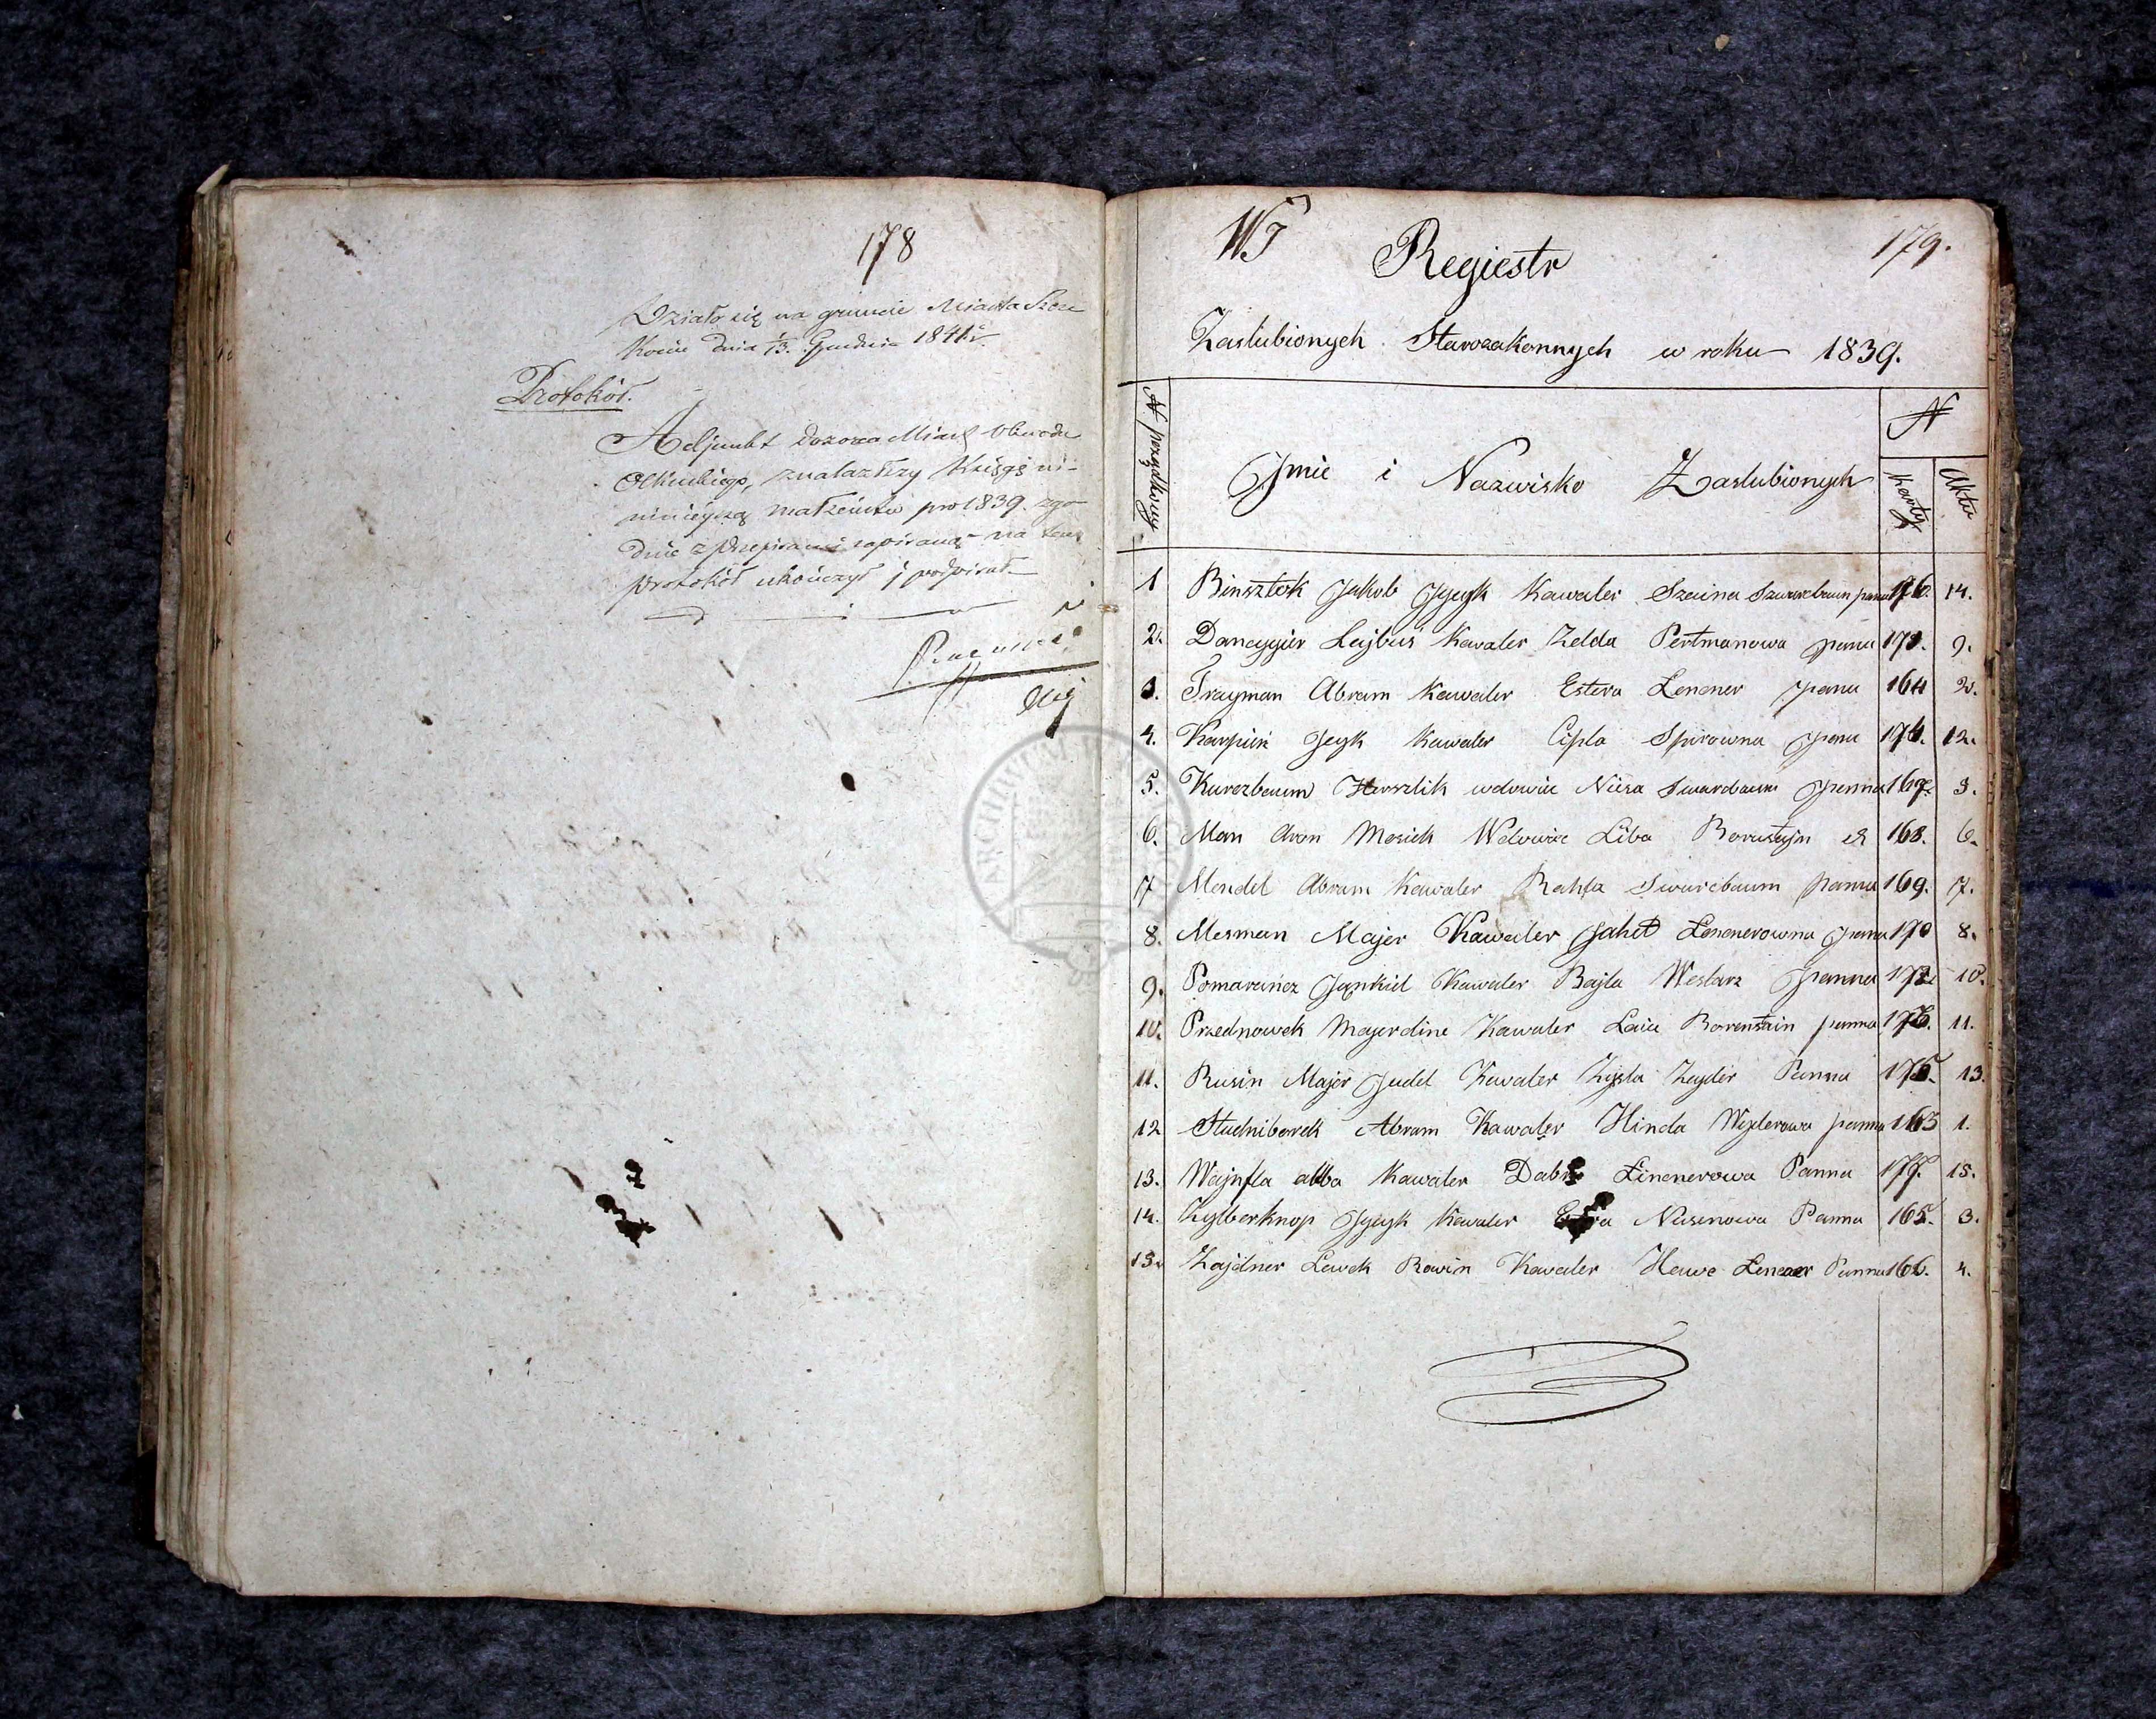 178
Działo się na gruncie Miasta Szcze
kocin dnia 1/13. Grudnia 1841 r.
Protokół.
Adjunkt Dozorca Miast Obwodu
Olkuskiego, znalazłszy Księgę ni-
nieyszą małżeństw pro 1839. zgo
dnie z Przepisami zapisaną na tem
protokół ukończył i podpisał
WJ
179.
Regiestr
Zaslubionych Starozakonnych w roku 1839.
N porządkowy
Jmie i Nazwisko Zaslubionych
N
karty
Aktu
1 Binsztok Jakob Jzyk Kawaler Szaina Szwarcbaum panna 176. 14.
2. Dancygier Lejbuś Kawaler Zelda Pertmanowa panna 171. 9.
3. Frayman Abram Kawaler Estera Lenener panna 164 2.
4. Karpień Jcyk Kawaler Cipla Spirowna panna 174. 12.
5. Kurczbaum Herszlik wdowiec Niesa Swarcbaum panna 167. 5.
6. Man Aron Mosiek Wdowiec Liba Borusztyn 168. 6.
7 Mendel Abram Kawaler Rahla Swarcbaum Panna 169. 7.
8. Mesman Majer Kawaler Jahet Lenenerowna panna 170 8.
9. Pomarańcz Jankiel Kawaler Bajla Weslarz panna 172 10.
10. Przednowek Majerdine Kawaler Laia Borensztain panna 173. 11.
11. Rusin Majer Judel Kawaler Zysla Zeyder Panna 175. 13.
12 Studniberek Abram Kawaler Hinda Wejderowa panna 163 1.
13. Wajnfla abba Kawaler Linenerowa Panna 177. 15.
14. Zylberknop Jzyk Kawaler Nusenowa Panna 165. 3.
15. Zajdner Lewek Rowin Kawaler Hawe Lenener Panna 166. 4.